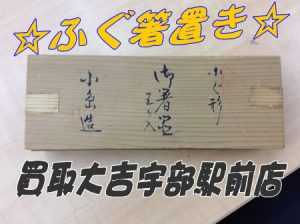 ☆ふぐ箸置き☆
ふく形
御箸置
五ヶ入
小島造
買取大吉宇部駅前店